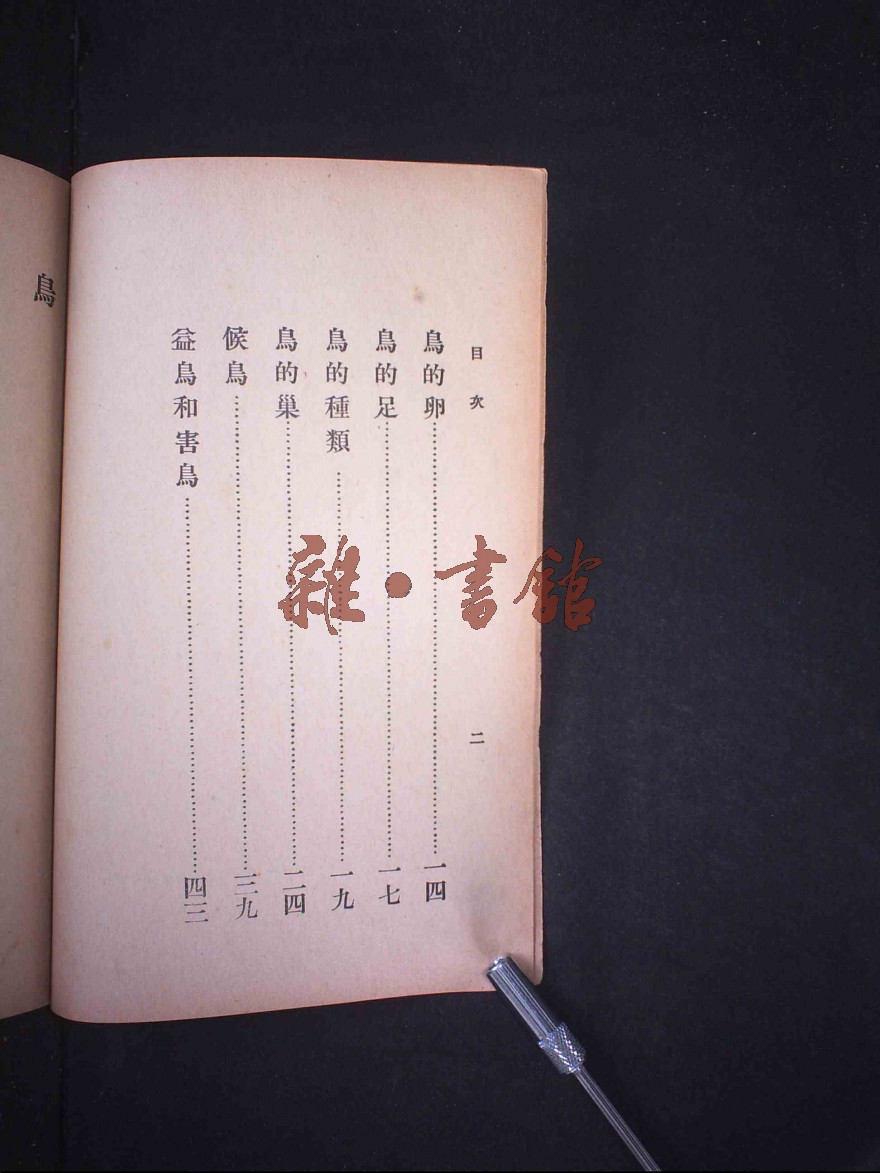 目次
二
鳥的卵……一四
鳥的足……一七
鳥的種類……一九
鳥的巢……二四
候鳥……三九
益鳥和害鳥……四三
鳥
雜·書館